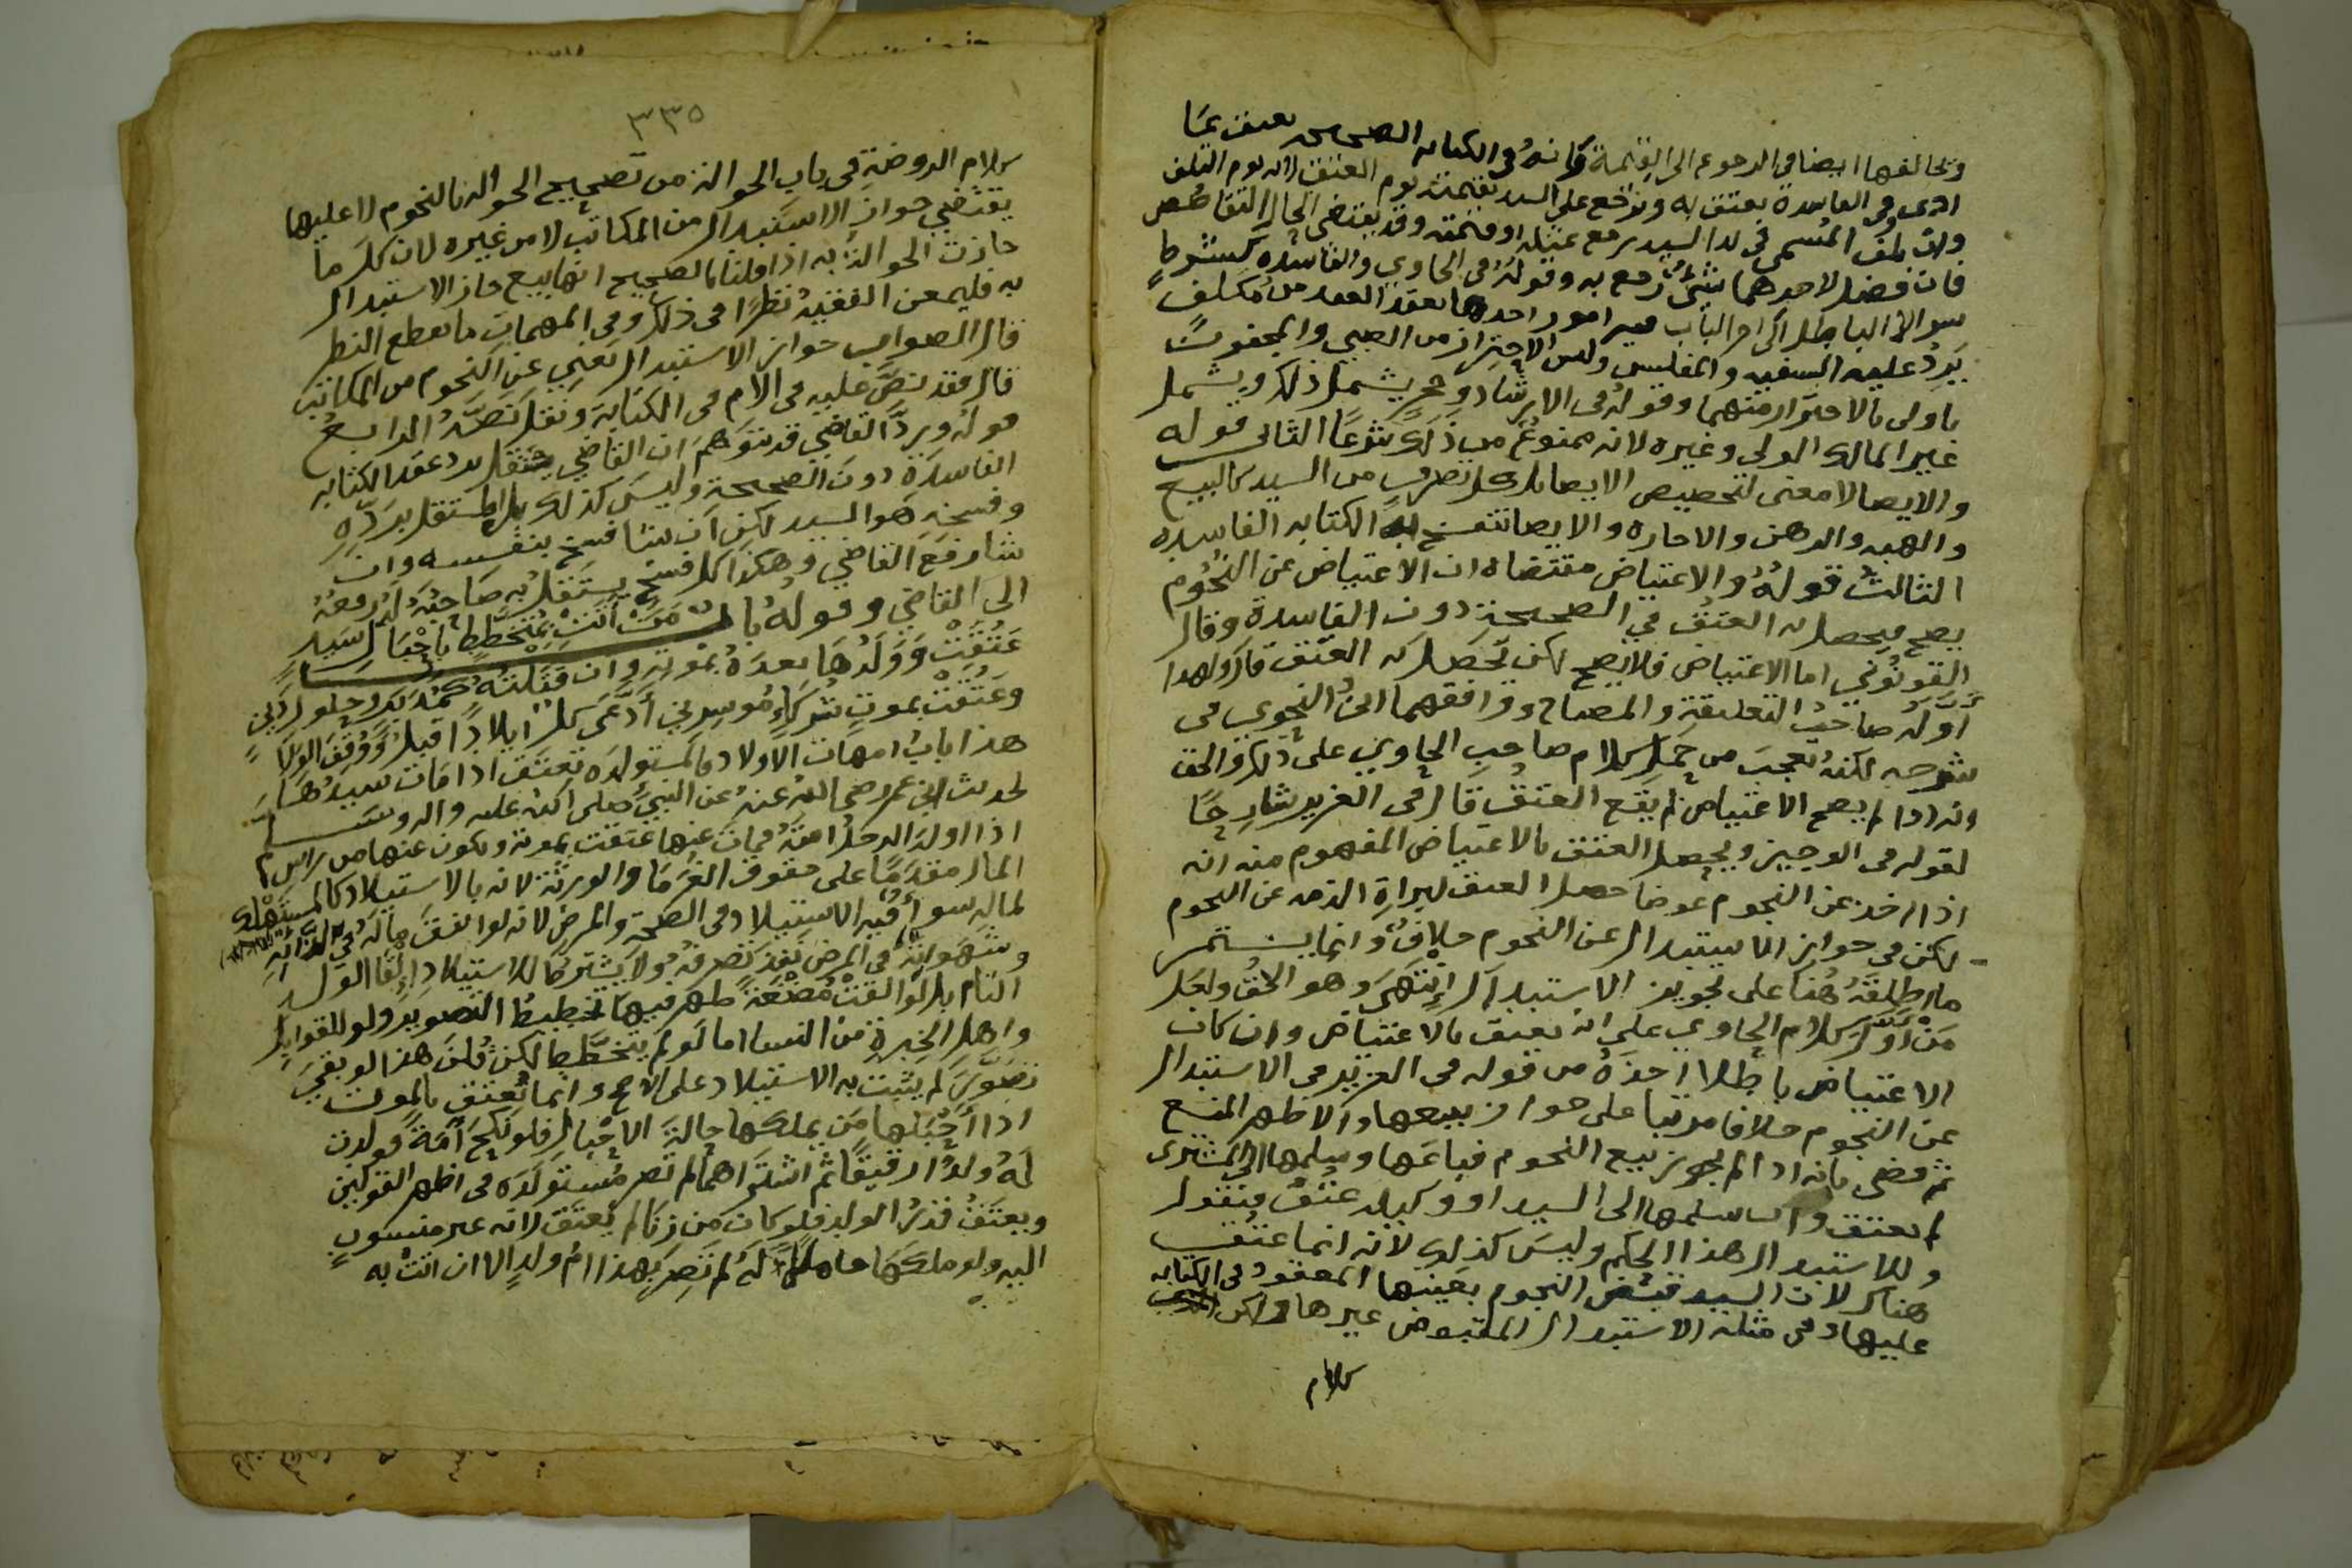 وتخالفها ايضا في الرجوع الى القيمة فانه في الكتابه الصحيحه يعتق بما
ادى وفي الفاسدة يعتق به ويرجع على السيد بقيمته يوم العتق لانه يوم التلف
وان تلف المسمى في يد السيد رجع بمثله او قيمته وقد يقتضي الحال التقاص
فان فضل لاحدهما شيء رجع به وقوله في الحاوي والفاسده كبشرط
سوال الباطل الى اخر الباب فيه امور احدها بعقد العقد من مكلف
يرد عليه السفيه والمفلس وليس الاحتراز من الصبي والمجنون
باولى بالاحتراز منهما وقوله في الارشاد وحجر يشمل ذلك ويشمل
غير المالك الولي وغيره لانه ممنوع من ذلك شرعا الثاني قوله
والايصا لا معنى لتخصيص الايصا بل كل تصرف من السيد كالبيع
والهبه والرهن والاجاره والايصا تنفسخ به الكتابه الفاسده
الثالث قوله والاعتياض مقتضاه ان الاعتياض عن النجوم
يصح فيحصل به العتق في الصحيحة دون الفاسدة وقال
القونوي اما الاعتياض فلا يصح لكن يحصل به العتق قال ولهذا
اوله صاحب التعليقة والمصباح ووافقهما ابن النحوي في
شرحه لكنه تعجب من حمل كلام صاحب الحاوي على ذلك والحق
انه اذا لم يصح الاعتياض لم يقع العتق قال في العزيز شارحا
لقوله في الوجيز ويحصل العتق بالاعتياض المفهوم منه انه
اذا اخذ عن النجوم عوضا حصل العتق لبراة الذمه عن النجوم
لكن في جواز الاستبدال عن النجوم خلاف وانما يستمر
ما اطلقه هنا على تجويز الاستبدال انتهى وهو الحق ولعل
من اول كلام الحاوي على انه يعتق بالاعتياض وان كان
الاعتياض باطلا اخذه من قوله في العزيز في الاستبدال
عن النجوم خلافا مرتبا على جواز بيعها والاظهر المنع
ثم قضى بانه اذا لم يجوز بيع النجوم فباعها وسلمها الى المشترى
لم يعتق وان سلمها الى السيد او وكيله عتق فنقول
وللاستبدال هذا الحكم وليس كذلك لانه انما عتق
هناك لان السيد قبض النجوم بعينها المعقود في الكتابه
عليها وفي مثله الاستبدال المقبوض غيرها ولكن
كلام
٣٣٥
كلام الروضة في باب الحوالة من تصحيح الحواله بالنجوم لا عليها
يقتضي جواز الاستبدال من المكاتب لا من غيره لان كل ما
جازت الحوالة به اذا قلنا بالصحيح انها بيع جاز الاستبدال
به فليمعن الفقيه نظرا في ذلك وفي المهمات ما يقطع النظر
قال الصواب جواز الاستبدال يعني عن النجوم من المكاتب
قال فقد نص عليه في الام في الكتابة ونقل نصه الرابع
قوله ويرد القاضي قد يتوهم ان القاضي يستقل برد عقد الكتابه
الفاسدة دون الصحيحة وليس كذلك بل المستقل برده
وفسخه هو السيد لكن ان شا فسخ بنفسه وان
شا رفع القاضي وهكذا كل فسخ يستقل به صاحبه له رفعه
الى القاضي وقوله باب من اتت بمتخطط باحبال سيد
عتقت وولدها بعده بموته وان قتلته كمدبر وحلول دين
وعتقت بموت شركاء موسرين ادعى كل ايلادا قبل ووقف الولا
هذا باب امهات الاولاد والمستولده تعتق اذا مات سيدها
لحديث ابن عمر رضي الله عنه عن النبي صلى الله عليه واله وسلم
اذا اولد الرجل امته فمات عنها عتقت بموته ويكون عتقها من راس
المال مقدما على حقوق الغرما والورثة لانه بالاستيلاد كالمستهلك
لماله سوا فيه الاستيلاد في الصحة والمرض لانه لو انفق ماله في لذاته
وشهواته في المرض نفذ تصرفه ولا يشترط للاستيلاد القا الولد
التام بل لو القت مضغة ظهر فيها تخطيط التصوير ولو للقوابل
واهل الخبرة من النسا اما لو لم يتخطط لكن قلن هذا لو بقي
تصور لم يثبت به الاستيلاد على الاصح وانما تعتق بالموت
اذا احبلها من يملكها حالة الاحبال فلو نكح امة فولدت
له ولدا رقيقا ثم اشتراهما لم تصر مستولده في اظهر القولين
ويعتق قدر الولد فلو كان من زنا لم يعتق لانه غير منسوب
اليه ولو ملكها حاملا له لم تصر بهذا ام ولد الا ان اتت به